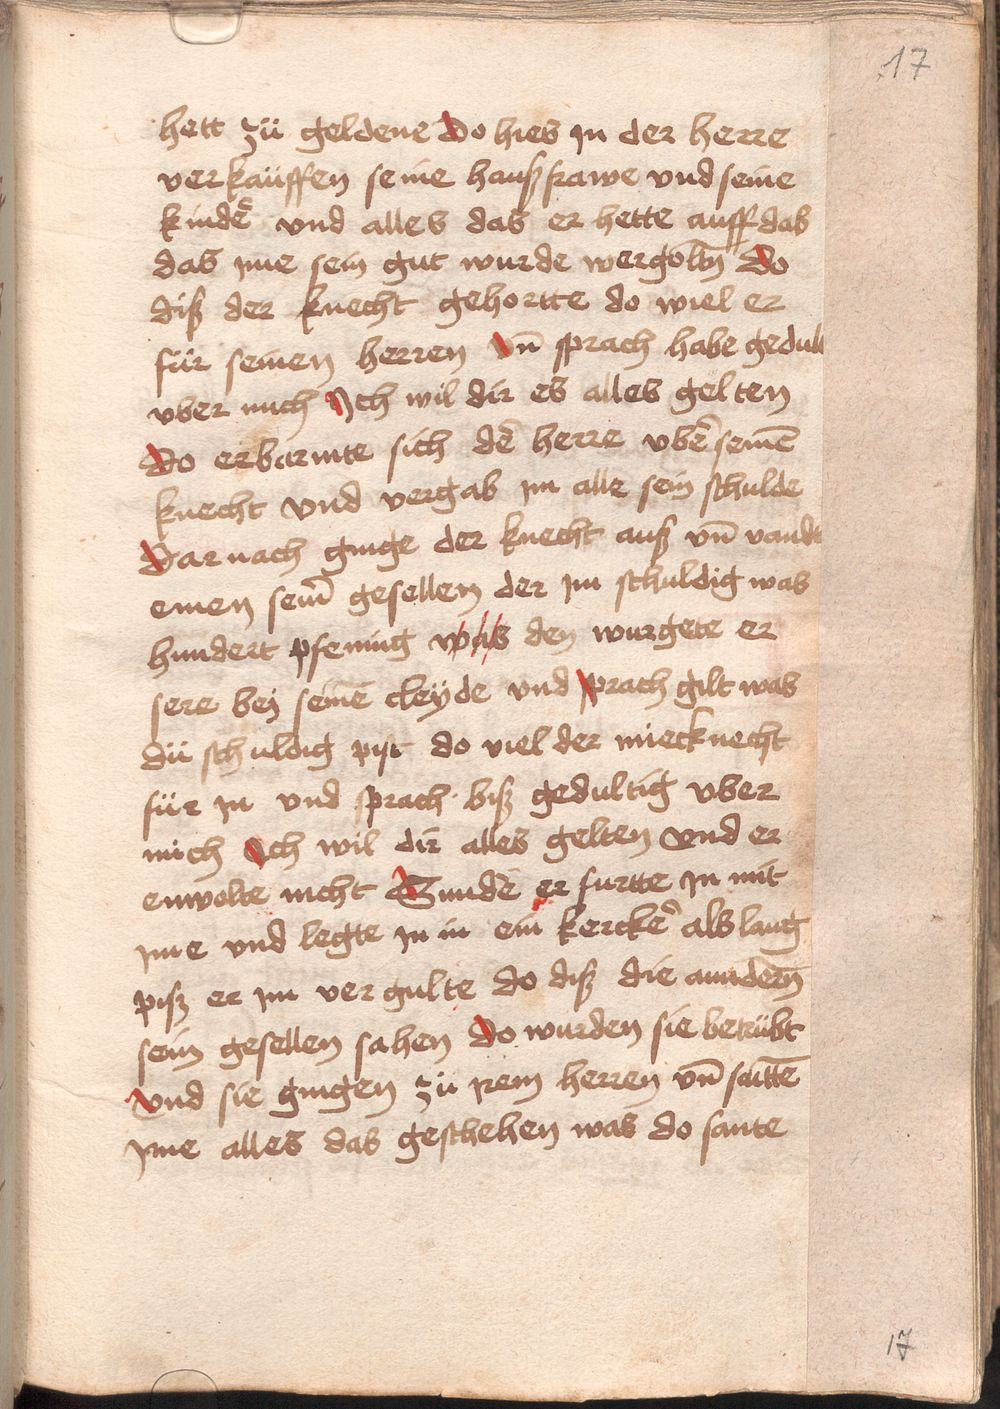 17
hett zü geldene Do hies in der herre
verkaüffen seine haußfrawe vnd seine
kindẽ vnd alles das er hette auff das
das ime sein gut wurde wergoltñ Do
diß der knecht gehortte do wiel er
für seinen herren Vñ sprach habe gedult
vber mich Ich wil dir es alles gelten
Do erbarmte sich dẽ herre vbẽ seinẽ
knecht vnd vergab im alle sein schulde
Dar nach ginge der knecht auß vñ vandt
einen seiñ gesellen der im schuldig was
hundert pfening was den wurgete er
sere bej seinẽ cleÿde vnd sprach gilt was
dü schuldig pist do viel der mitknecht
für in vnd sprach biß gedultig vber
mich Ich wil dir alles gelten vnd er
enwolte nicht Sundẽ er furtte in mit
ime vnd legte in in ein kerckẽ als lang
piß er im vergulte do diß die anndeñ
sein gesellen sahen Do wurden sie betrübt
Vnd sie gingen zü irem herren vñ saittẽ
ime alles das geschehen was do sante
17